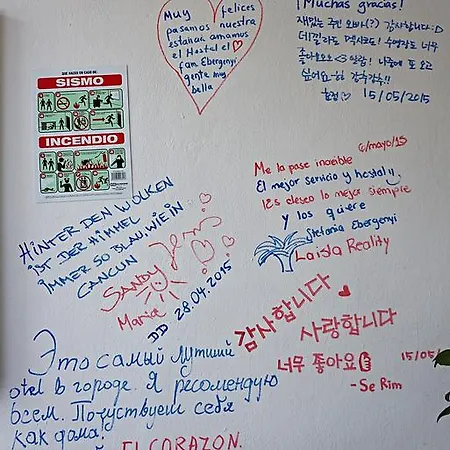 Muy felices
pasamos nuestra
estancia amamos
el Hostel el
fam Ebergenyi
gente muy
bella
¡Muchas gracias!
재밌는 주인 오빠(?) 감사합니다:D
데낄라도 멕시코도! 수영장도 너무
좋아요요요
15/05/2015
QUE HACER EN CASO DE
SISMO
INCENDIO
6/mayo/15
Me la pase increible
El mejor servicio y hostal!!
les deseo lo mejor siempre
y los quiere
Stefania Ebergenyi
Laisla Reality
HINTER DEN WOLKEN
IST DER HIMMEL
IMMER SO BLAU WIE IN
CANCUN
SANDY
Jenni
Marie
DD 28.04.2015
감사합니다
사랑합니다
너무 좋아요
15/05/
-Se Rim
Это самый лутший
otel в городе. Я рекомендую
всем. Почуствуеш себя
как дома!
EL CORAZON.